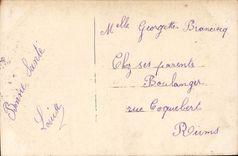 Melle Georgette Brancourg
Chez ses parents
Boulanger
rue Coquebert
Reims
Bonne Santé
Louise